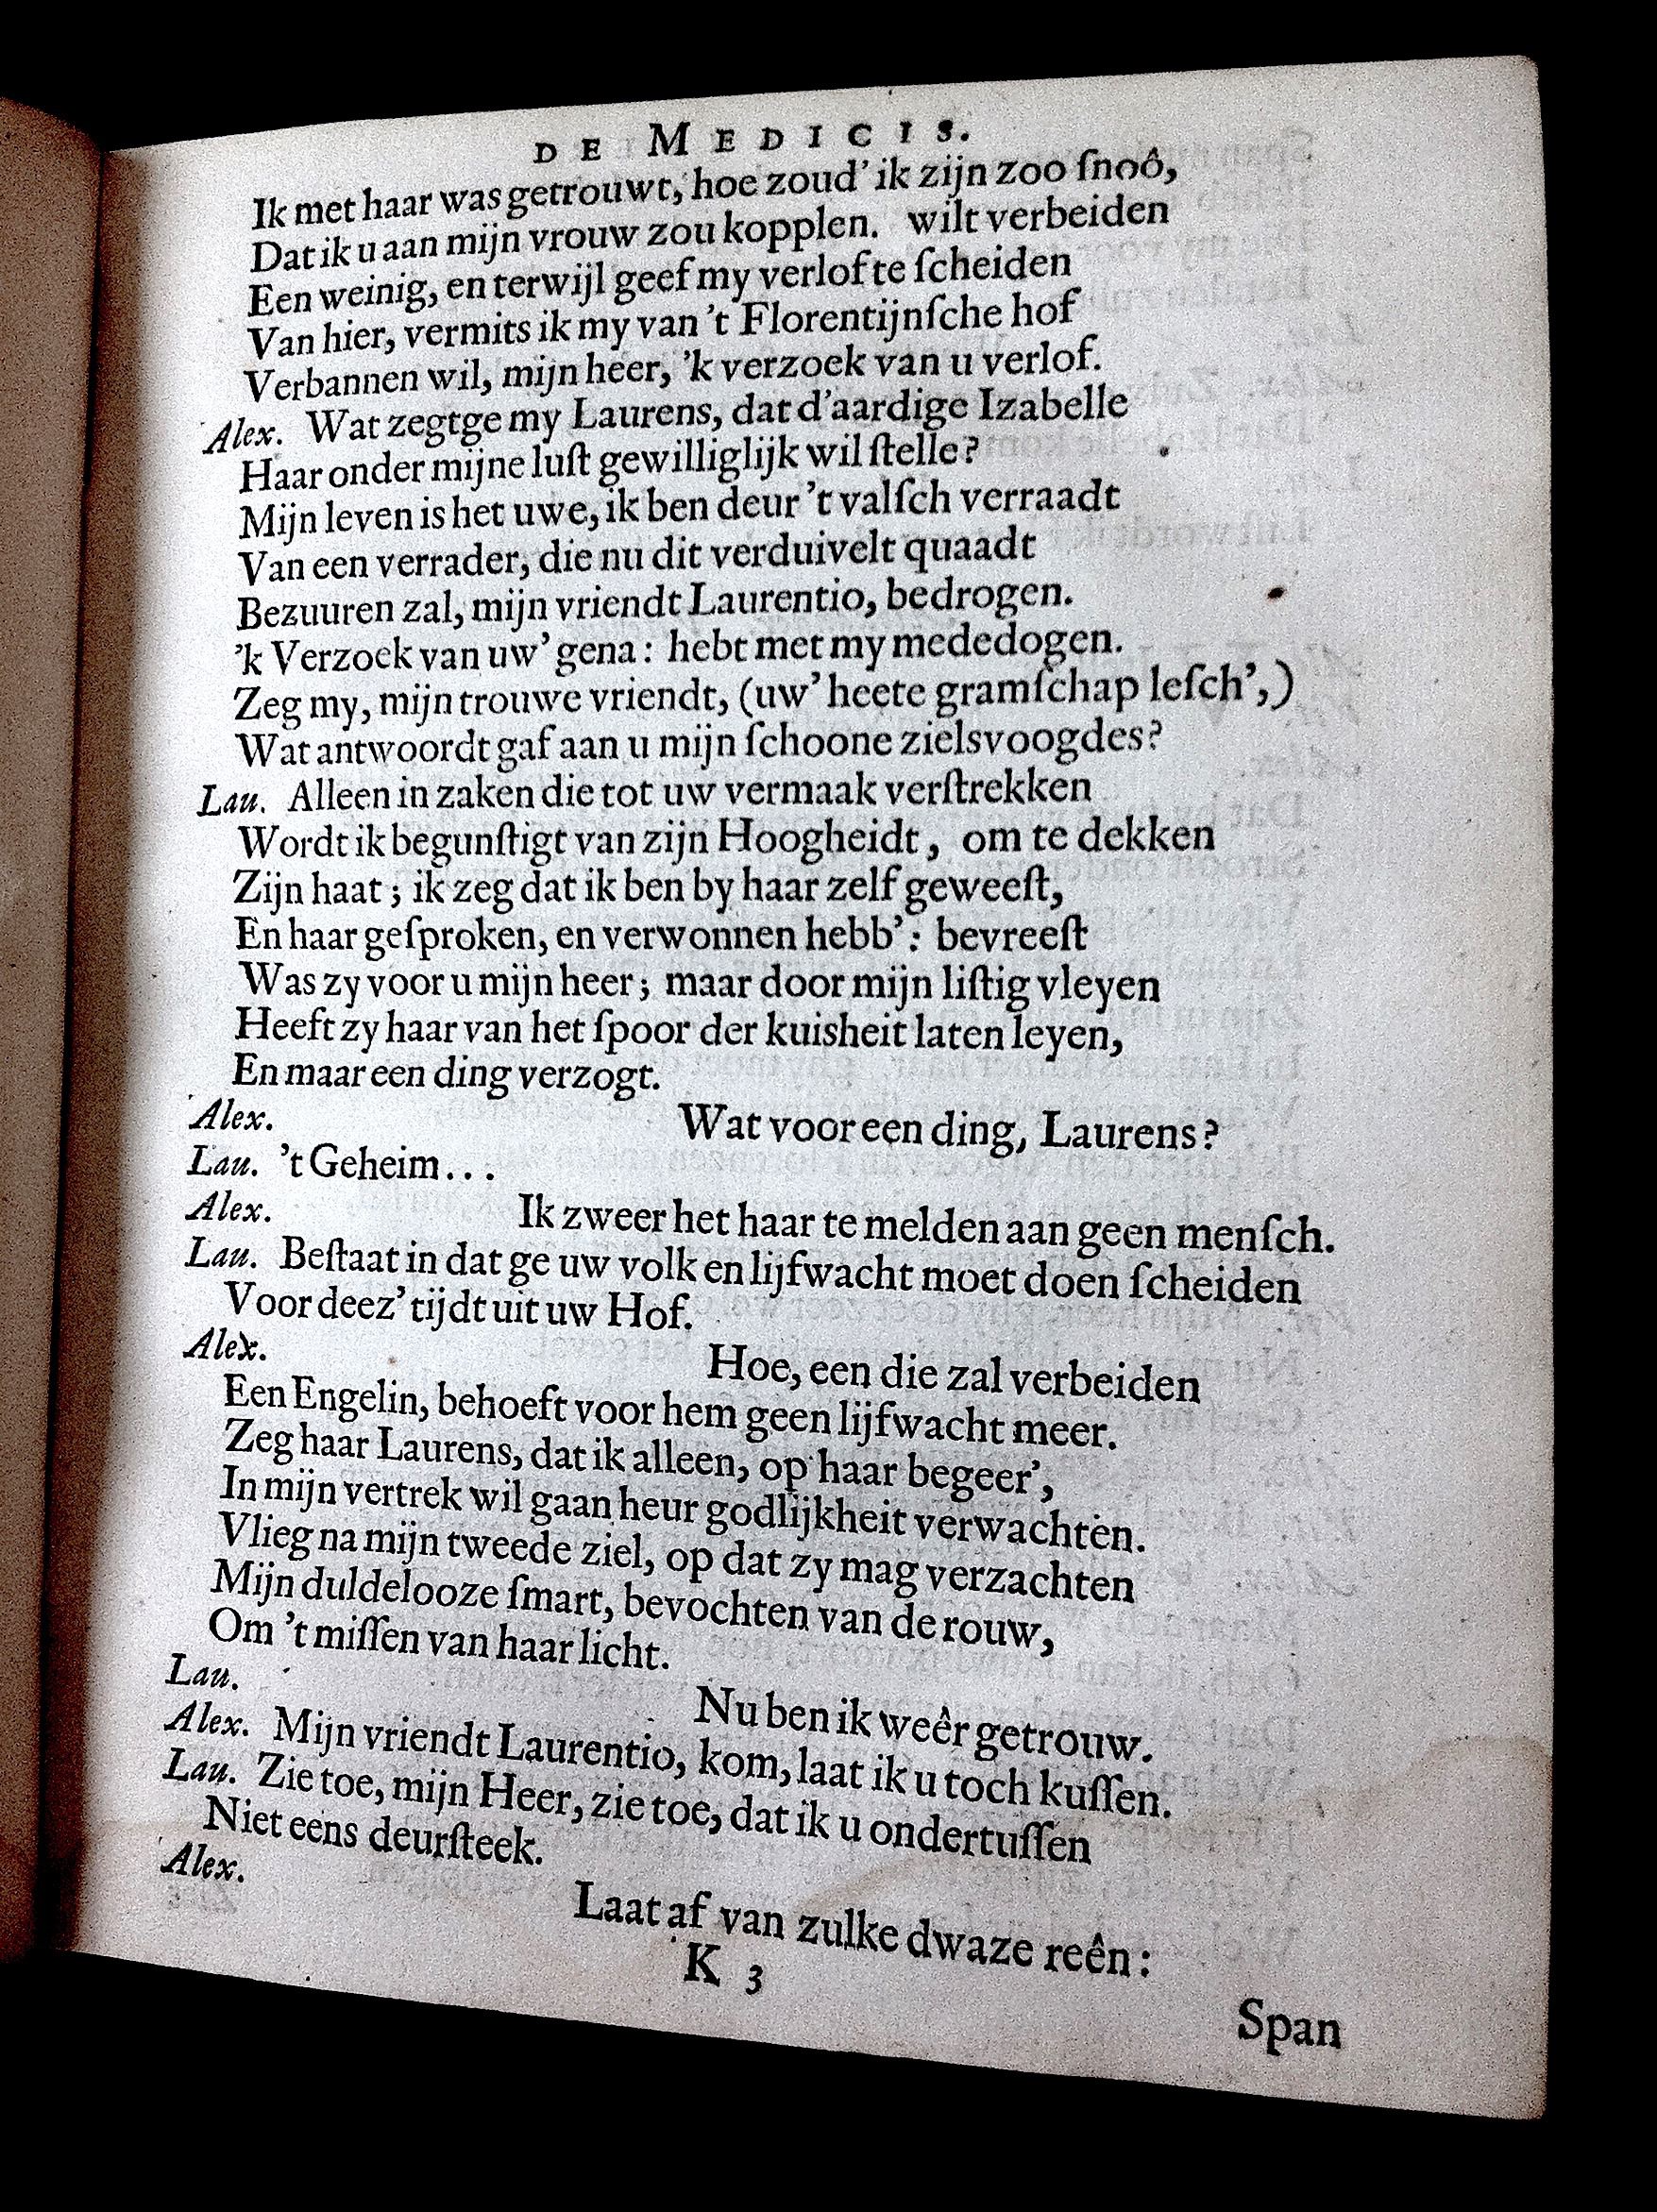 DE MEDICIS.
Ik met haar was getrouwt, hoe zoud' ik zijn zoo ſnoô,
Dat ik u aan mijn vrouw zou kopplen. wilt verbeiden
Een weinig, en terwijl geef my verlof te ſcheiden
Van hier, vermits ik my van 't Florentijnſche hof
Verbannen wil, mijn heer, 'k verzoek van u verlof.
Alex. Wat zegtge my Laurens, dat d'aardige Izabelle
Haar onder mijne luſt gewilliglijk wil ſtelle?
Mijn leven is het uwe, ik ben deur 't valſch verraadt
Van een verrader, die nu dit verduivelt quaadt
Bezuuren zal, mijn vriendt Laurentio, bedrogen.
'k Verzoek van uw' gena: hebt met my mededogen.
Zeg my, mijn trouwe vriendt, (uw' heete gramſchap leſch',)
Wat antwoordt gaf aan u mijn ſchoone zielsvoogdes?
Lau. Alleen in zaken die tot uw vermaak verſtrekken
Wordt ik begunſtigt van zijn Hoogheidt, om te dekken
Zijn haat; ik zeg dat ik ben by haar zelf geweeſt,
En haar geſproken, en verwonnen hebb': bevreeſt
Was zy voor u mijn heer; maar door mijn liſtig vleyen
Heeft zy haar van het ſpoor der kuisheit laten leyen,
En maar een ding verzogt.
Alex. Wat voor een ding, Laurens?
Lau. 't Geheim...
Alex. Ik zweer het haar te melden aan geen menſch.
Lau. Beſtaat in dat ge uw volk en lijfwacht moet doen ſcheiden
Voor deez' tijdt uit uw Hof.
Alex. Hoe, een die zal verbeiden
Een Engelin, behoeft voor hem geen lijfwacht meer.
Zeg haar Laurens, dat ik alleen, op haar begeer',
In mijn vertrek wil gaan heur godlijkheit verwachten.
Vlieg na mijn tweede ziel, op dat zy mag verzachten
Mijn duldelooze ſmart, bevochten van de rouw,
Om 't miſſen van haar licht.
Lau. Nu ben ik weêr getrouw.
Alex. Mijn vriendt Laurentio, kom, laat ik u toch kuſſen.
Lau. Zie toe, mijn Heer, zie toe, dat ik u ondertuſſen
Niet eens deurſteek.
Alex. Laat af van zulke dwaze reên:
K 3
Span